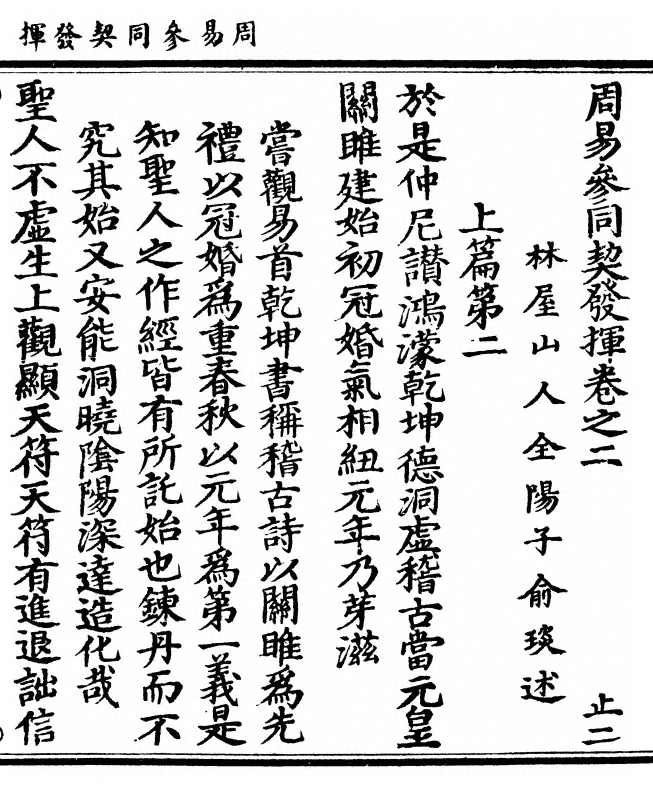 周易參同契發揮
周易參同契發揮卷之二
止二
林屋山人全陽子俞琰述
上篇第二
於是仲尼讃鴻濛乾坤德洞虛稽古當元皇
關雎建始初冠婚氣相紐元年乃芽滋
嘗觀易首乾坤書稱稽古詩以關雎爲先
禮以冠婚爲重春秋以元年爲第一義是
知聖人之作經皆有所託始也鍊丹而不
究其始又安能洞曉陰陽深達造化哉
聖人不虛生上觀顯天符天符有進退詘信